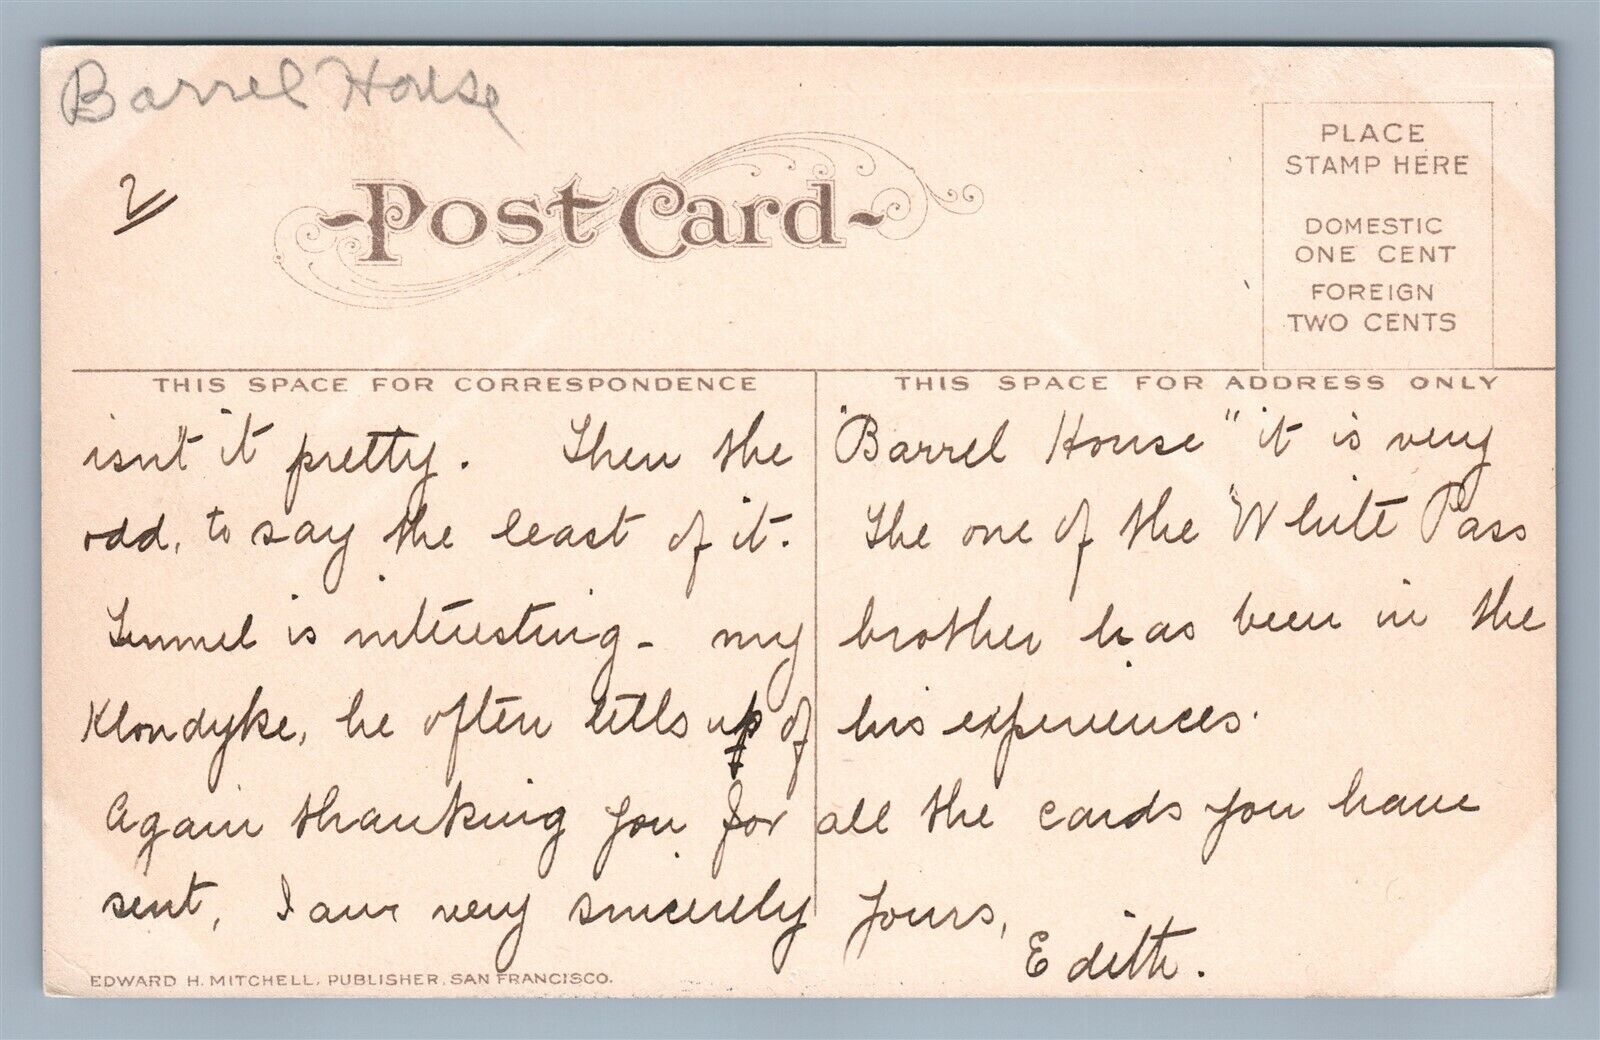 Barrel House
2
Post Card
PLACE
STAMP HERE
DOMESTIC
ONE CENT
FOREIGN
TWO CENTS
THIS SPACE FOR CORRESPONDENCE
THIS SPACE FOR ADDRESS ONLY
isn't it pretty. Then the "Barrel House" it is very
odd, to say the least of it. The one of the "White Pass
Tunnel is interesting - my brother has been in the
Klondyke, he often tells us of his experiences.
Again thanking you for all the cards you have
sent, I am very sincerely yours,
Edith.
EDWARD H. MITCHELL, PUBLISHER, SAN FRANCISCO.